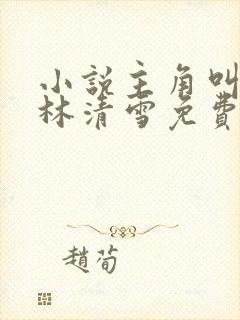 小說主角叫
林清雪免費
趙荀